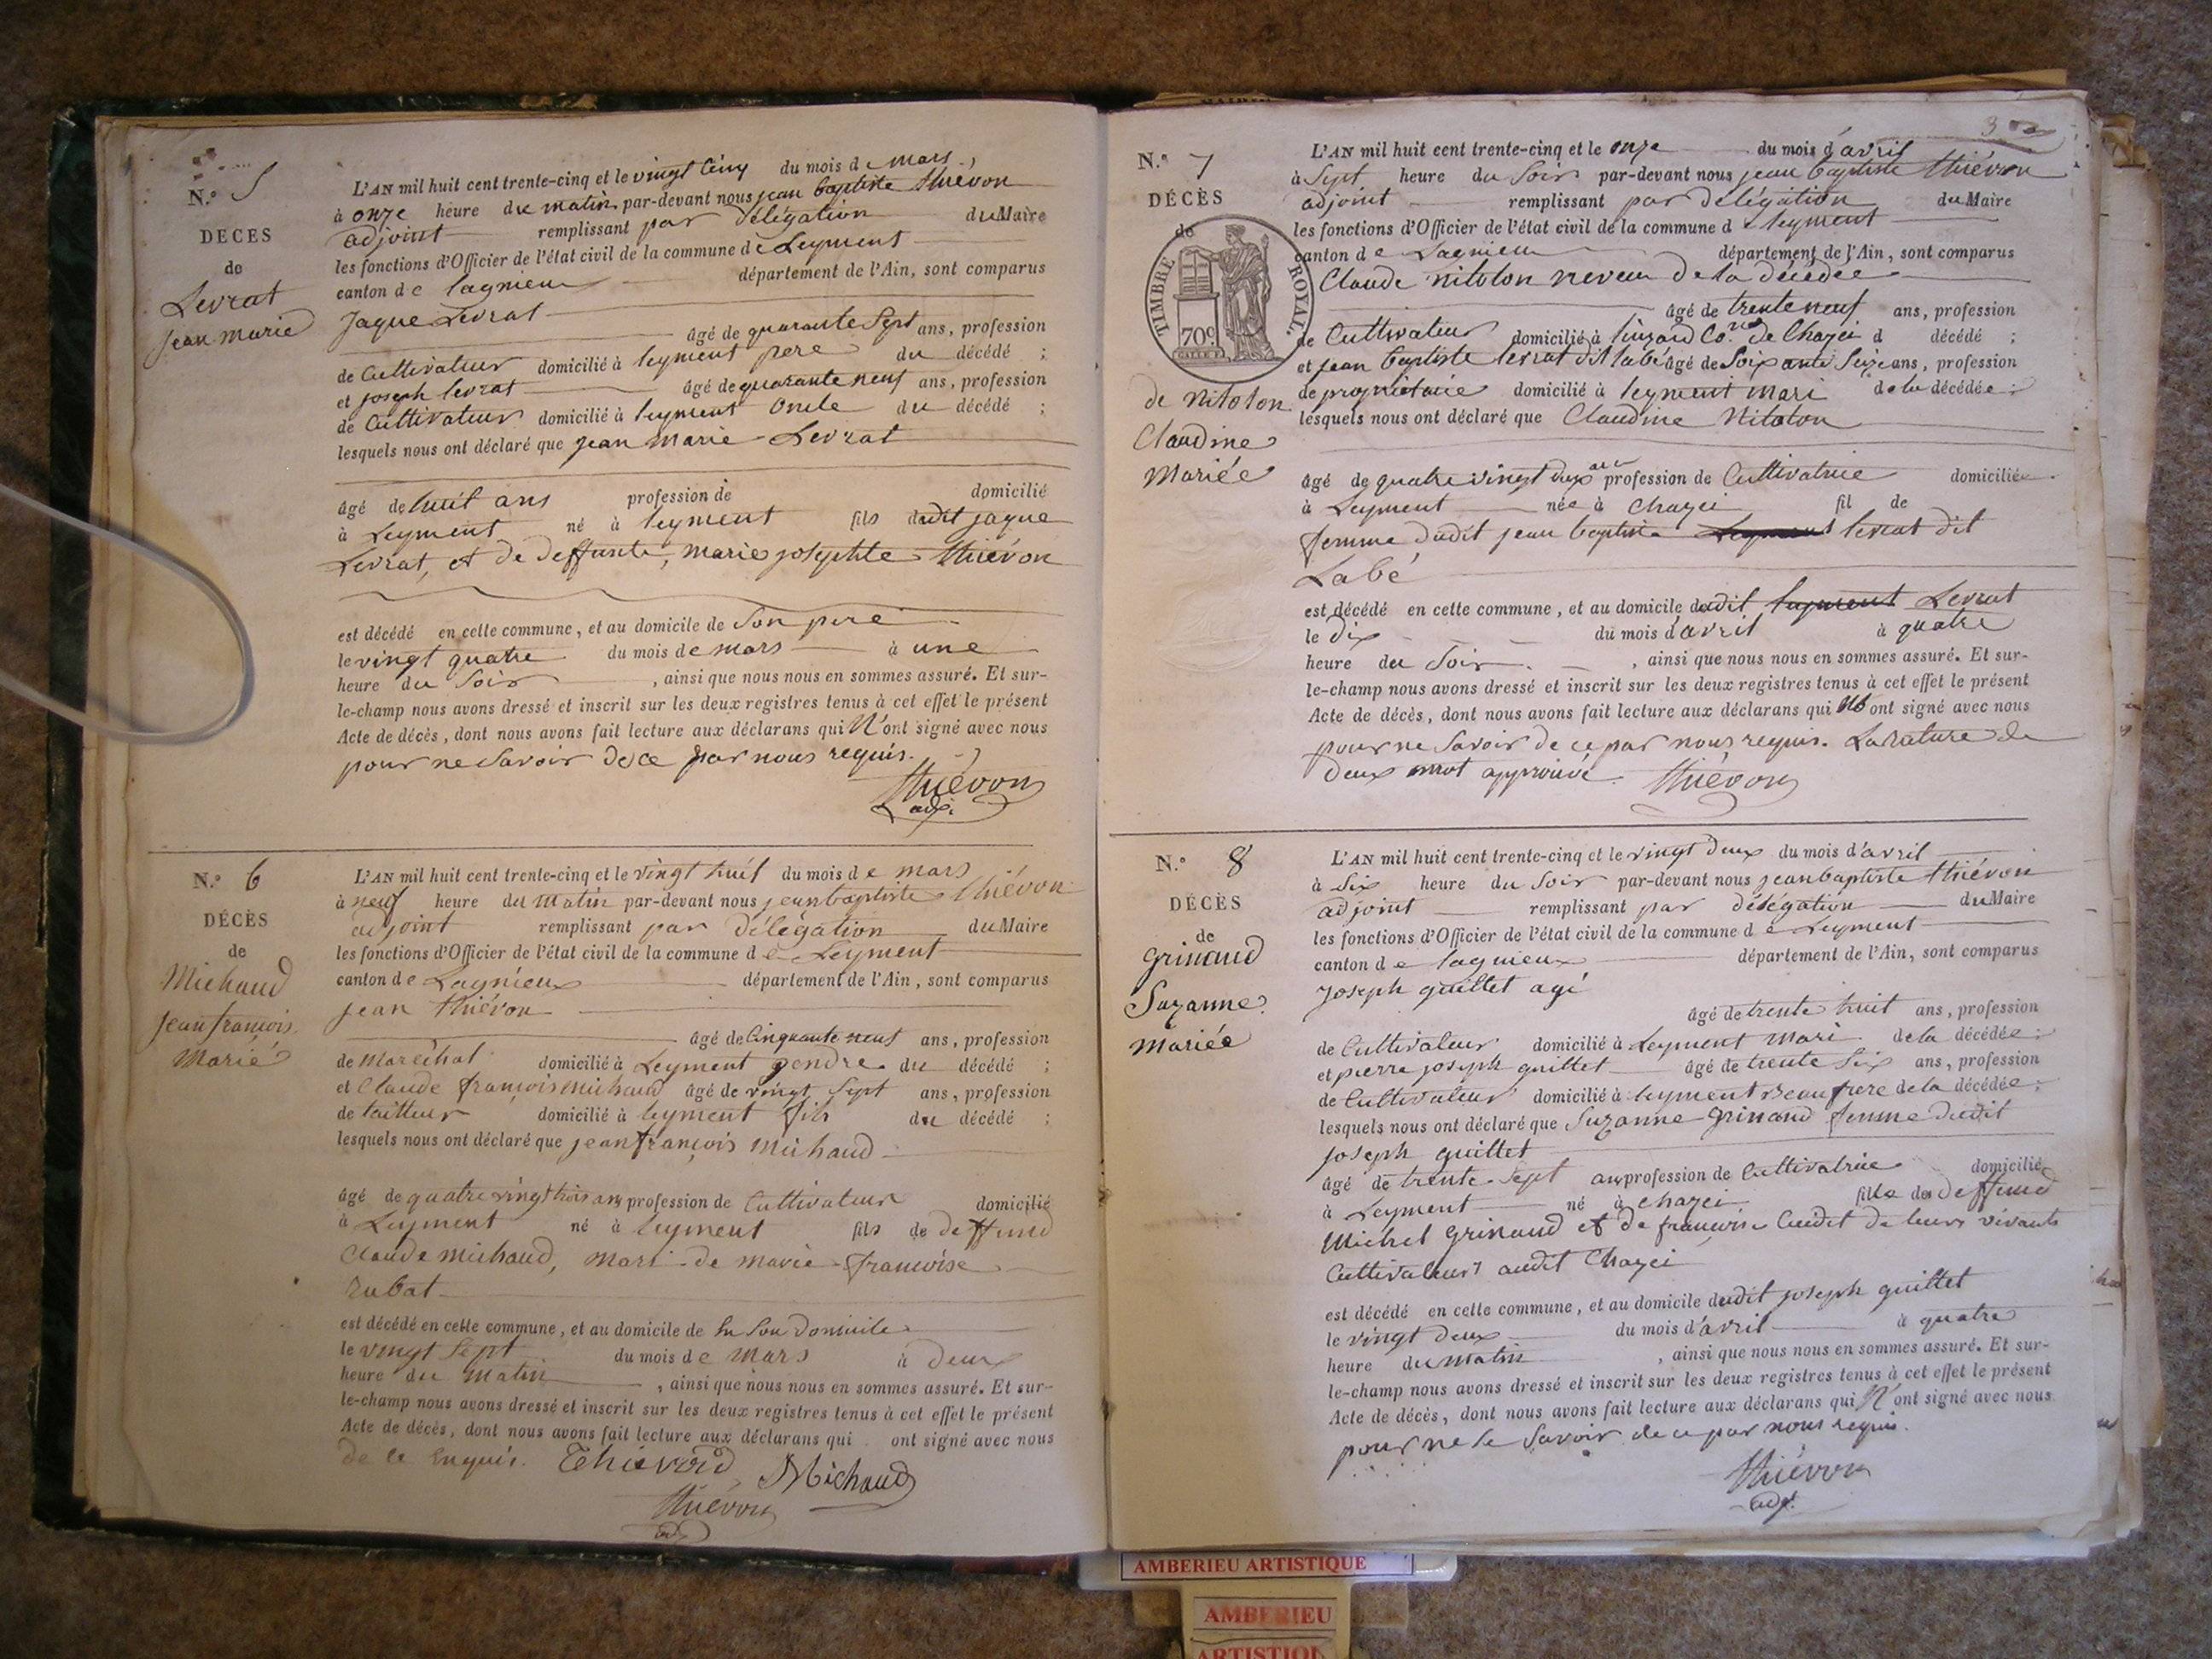 N.º 5
DÉCÈS
de
Levrat
jean marie
L'AN mil huit cent trente-cinq et le vingt cinq du mois de mars
à onze heure du matin par-devant nous jean baptiste thiévon
adjoint remplissant par délégation du Maire
les fonctions d'Officier de l'état civil de la commune de Leyment
canton de lagnieu département de l'Ain, sont comparus
jaque Levrat
âgé de quarante Sept ans, profession
de Cultivateur domicilié à leyment pere du décédé ;
et joseph levrat âgé de quarante neuf ans, profession
de Cultivateur domicilié à leyment Oncle du décédé ;
lesquels nous ont déclaré que jean marie Levrat
âgé de huit ans profession de domicilié
à Leyment né à leyment fils dudit jaque
Levrat, et de deffunte, marie josephte thiévon
est décédé en cette commune, et au domicile de Son pere
le vingt quatre du mois de mars à une
heure du Soir , ainsi que nous nous en sommes assuré. Et sur-
le-champ nous avons dressé et inscrit sur les deux registres tenus à cet effet le présent
Acte de décès, dont nous avons fait lecture aux déclarans qui N'ont signé avec nous
pour ne Savoir de ce par nous requis.
thiévon
adj.
N.º 6
DÉCÈS
de
Michaud
jean françois
Marié
L'AN mil huit cent trente-cinq et le vingt huit du mois de mars
à neuf heure du matin par-devant nous jean baptiste thiévon
adjoint remplissant par délégation du Maire
les fonctions d'Officier de l'état civil de la commune de Leyment
canton de Lagnieux département de l'Ain, sont comparus
jean thiévon
âgé de Cinquante neuf ans, profession
de maréchal domicilié à Leyment gendre du décédé ;
et Claude françois michaud âgé de vingt Sept ans, profession
de tailleur domicilié à leyment fils du décédé ;
lesquels nous ont déclaré que jean françois michaud
âgé de quatre vingt trois ans profession de Cultivateur domicilié
à Leyment né à leyment fils de deffund
Claude michaud, mari de marie françoise
rubat
est décédé en cette commune, et au domicile de Son domicile
le vingt Sept du mois de mars à deux
heure du matin , ainsi que nous nous en sommes assuré. Et sur-
le-champ nous avons dressé et inscrit sur les deux registres tenus à cet effet le présent
Acte de décès, dont nous avons fait lecture aux déclarans qui ont signé avec nous
de ce enquis. Michaud
thiévon
3
N.º 7
DÉCÈS
de
TIMBRE ROYAL.
70c.
de nitoton
Claudine
Mariée
L'AN mil huit cent trente-cinq et le onze du mois d'avril
à Sept heure du Soir par-devant nous jean baptiste thiévon
adjoint remplissant par délégation du Maire
les fonctions d'Officier de l'état civil de la commune de leyment
canton de Lagnieu département de l'Ain, sont comparus
Claude nitoton neveu de la décédée
âgé de trente neuf ans, profession
de Cultivateur domicilié à de Chazei d décédé ;
et jean baptiste levrat dit labé âgé de Soixante Seize ans, profession
de propriétaire domicilié à leyment mari de la décédée ;
lesquels nous ont déclaré que Claudine Nitoton
âgé de quatre vingt deux ans profession de Cultivatrice domiciliée
à Leyment née à Chazei fil de
femme dudit jean baptiste levrat dit
Labé
est décédé en cette commune, et au domicile dudit leyment Levrat
le dix du mois d'avril à quatre
heure du Soir , ainsi que nous nous en sommes assuré. Et sur-
le-champ nous avons dressé et inscrit sur les deux registres tenus à cet effet le présent
Acte de décès, dont nous avons fait lecture aux déclarans qui ont signé avec nous
pour ne Savoir de ce par nous requis. La rature de
deux mot approuvé thiévon
N.º 8
DÉCÈS
de
grinand
Suzanne
mariée
L'AN mil huit cent trente-cinq et le vingt deux du mois d'avril
à Six heure du Soir par-devant nous jean baptiste thiévon
adjoint remplissant par délégation du Maire
les fonctions d'Officier de l'état civil de la commune de Leyment
canton de lagnieux département de l'Ain, sont comparus
joseph guillet agé
âgé de trente huit ans, profession
de Cultivateur domicilié à Leyment mari de la décédée ;
et pierre joseph guillet âgé de trente Six ans, profession
de Cultivateur domicilié à leyment Beau frere de la décédée ;
lesquels nous ont déclaré que Suzanne grinand femme dudit
joseph guillet
âgé de trente Sept ans profession de Cultivatrice domicilié
à Leyment né à Chazei fille de deffund
Michel grinand et de françoise de leurs vivants
Cultivateurs audit Chazei
est décédé en cette commune, et au domicile dudit joseph guillet
le vingt deux du mois d'avril à quatre
heure du matin , ainsi que nous nous en sommes assuré. Et sur-
le-champ nous avons dressé et inscrit sur les deux registres tenus à cet effet le présent
Acte de décès, dont nous avons fait lecture aux déclarans qui N'ont signé avec nous
pour ne le Savoir de ce par nous requis.
thiévon
adjt.
AMBERIEU ARTISTIQUE
AMBERIEU
ARTISTIQ